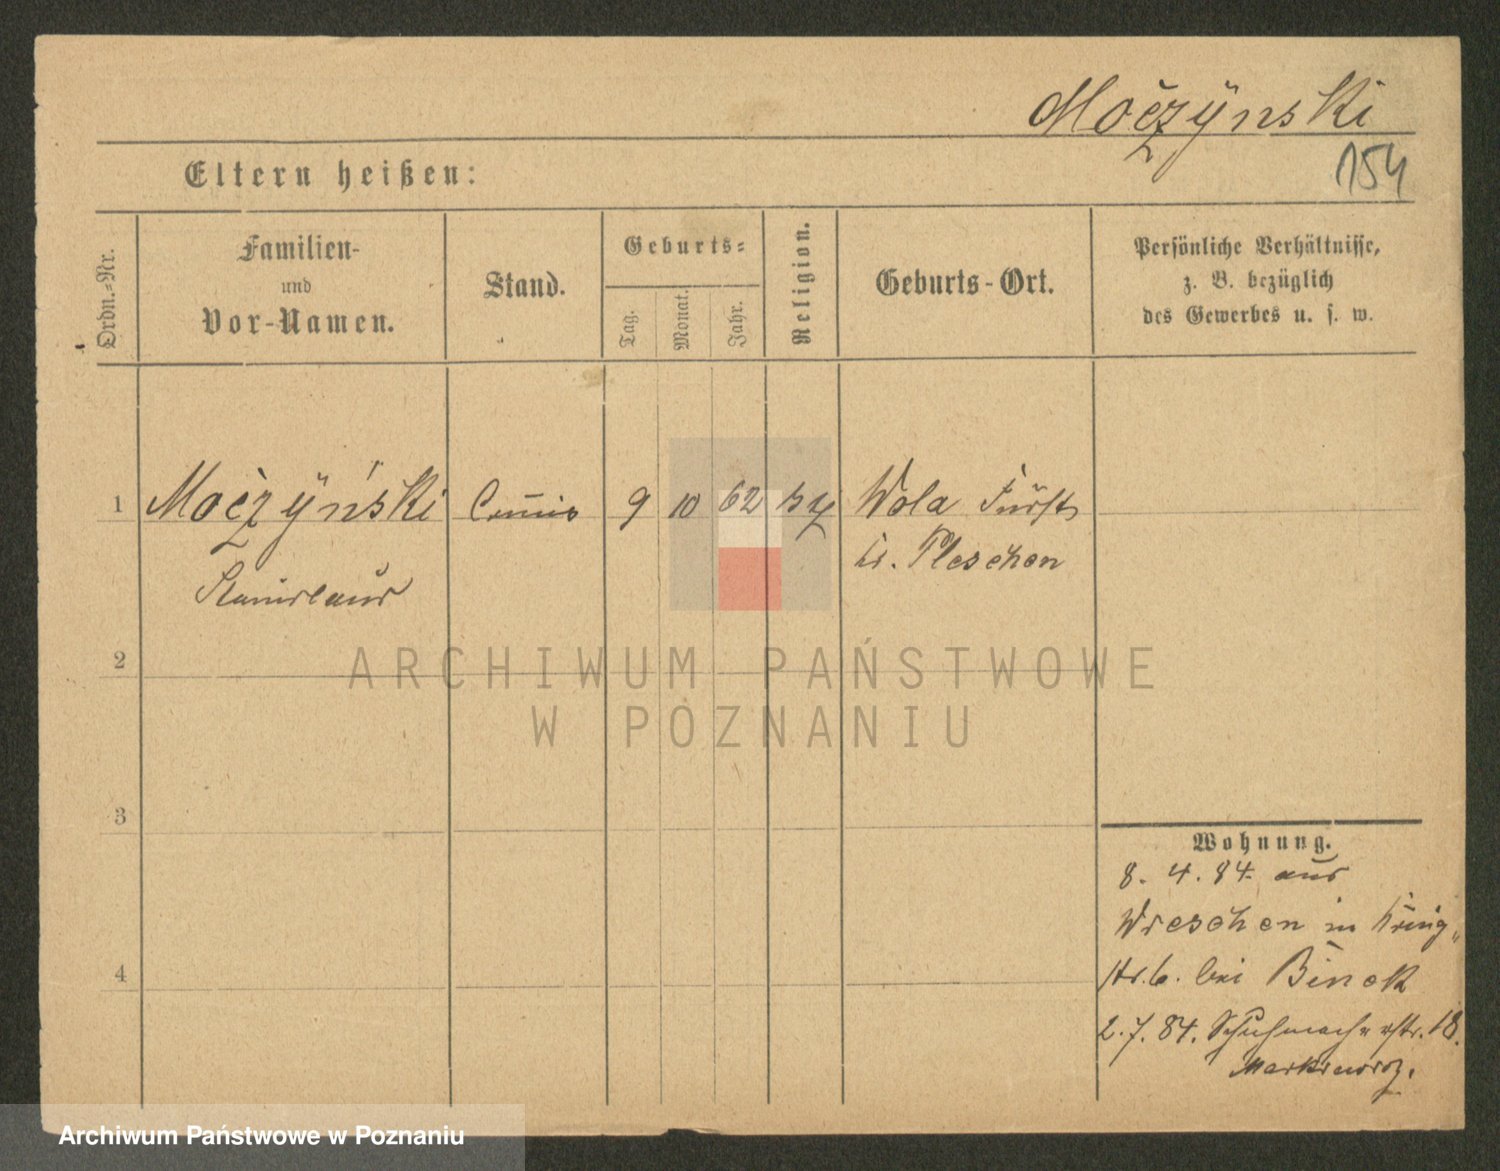 Moczÿnski
154
Eltern heißen:
Ordn.-Nr.
Familien-
und
Vor-Namen.
Stand.
Geburts-
Tag.
Monat.
Jahr.
Religion.
Geburts-Ort.
Persönliche Verhältnisse,
z. B. bezüglich
des Gewerbes u. s. w.
1 Moczÿński Commis 9 10 62 Wola Fürstl
Kr. Pleschen
Stanislaus
2
ARCHIWUM PAŃSTWOWE
W POZNANIU
3
Wohnung.
8. 4. 84. aus
Wreschen in
6. bei Binek
4
2. 7. 84. Schuhmacherstr. 18.
Archiwum Państwowe w Poznaniu